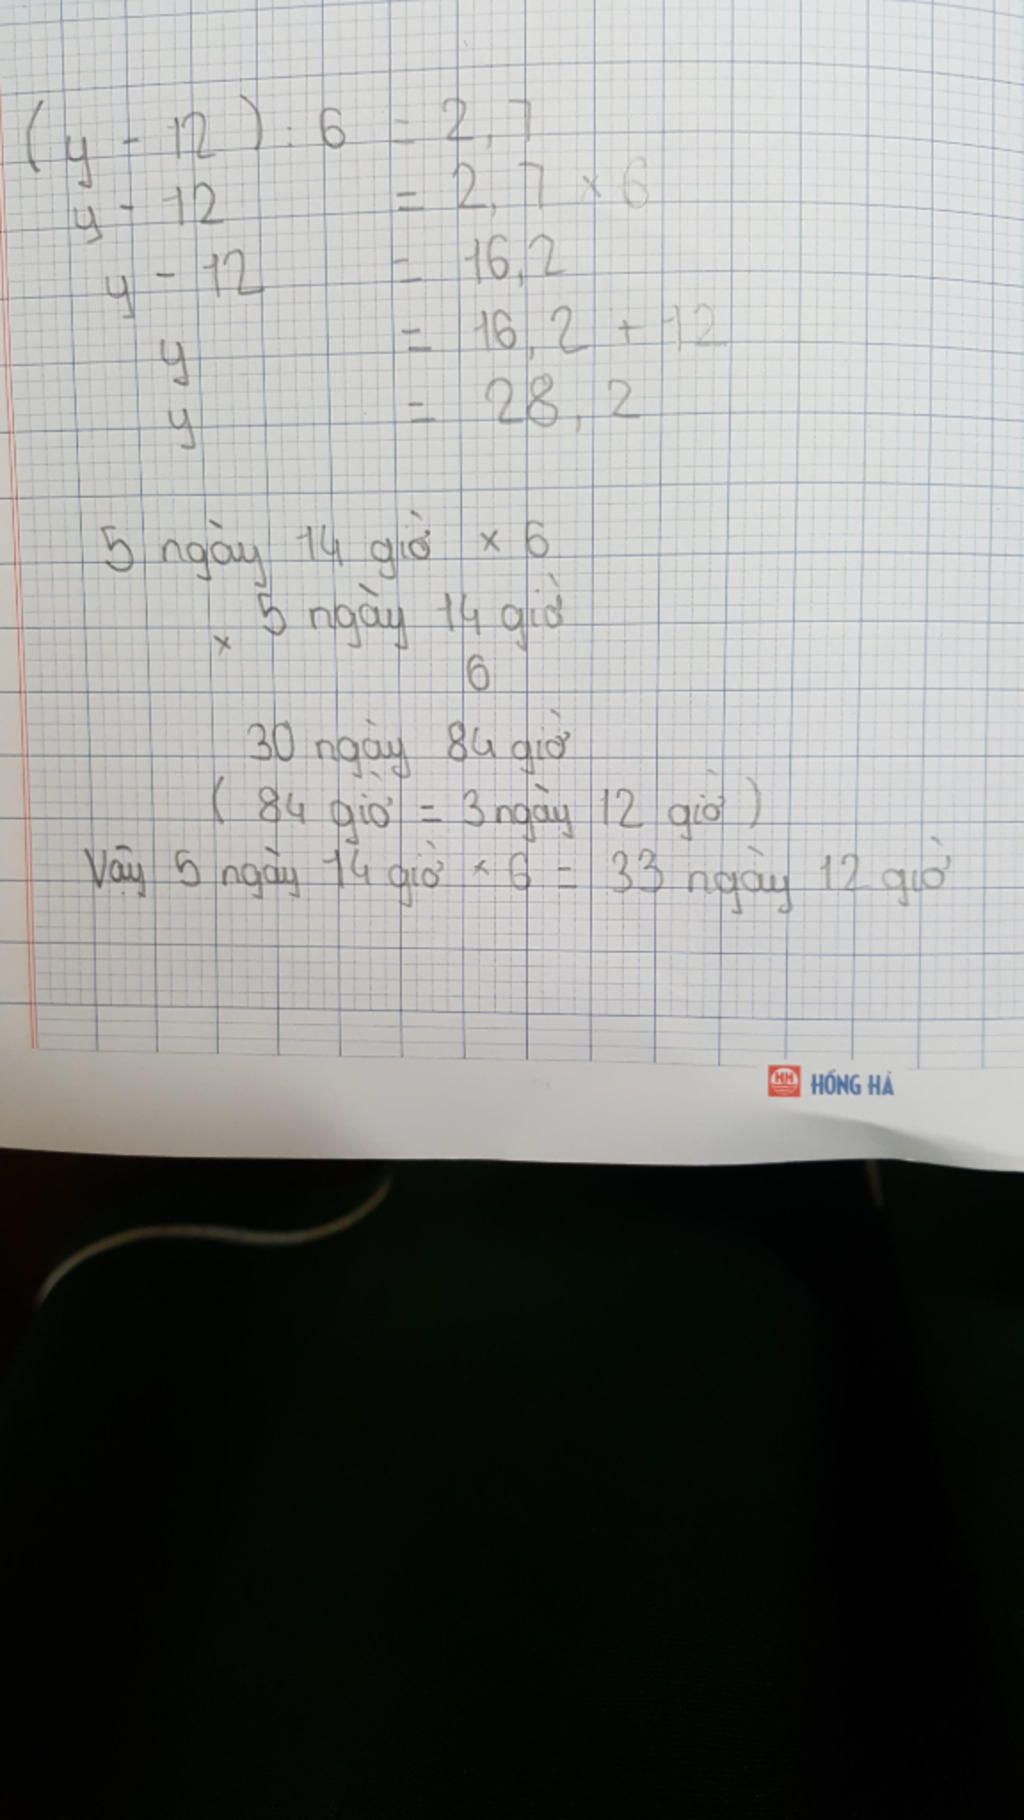 (y - 12) : 6 = 2,7
y - 12 = 2,7 x 6
y - 12 = 16,2
y = 16,2 + 12
y = 28,2
5 ngày 14 giờ x 6
x 5 ngày 14 giờ
6
30 ngày 84 giờ
( 84 giờ = 3 ngày 12 giờ )
Vậy 5 ngày 14 giờ x 6 = 33 ngày 12 giờ
HH HỒNG HÀ